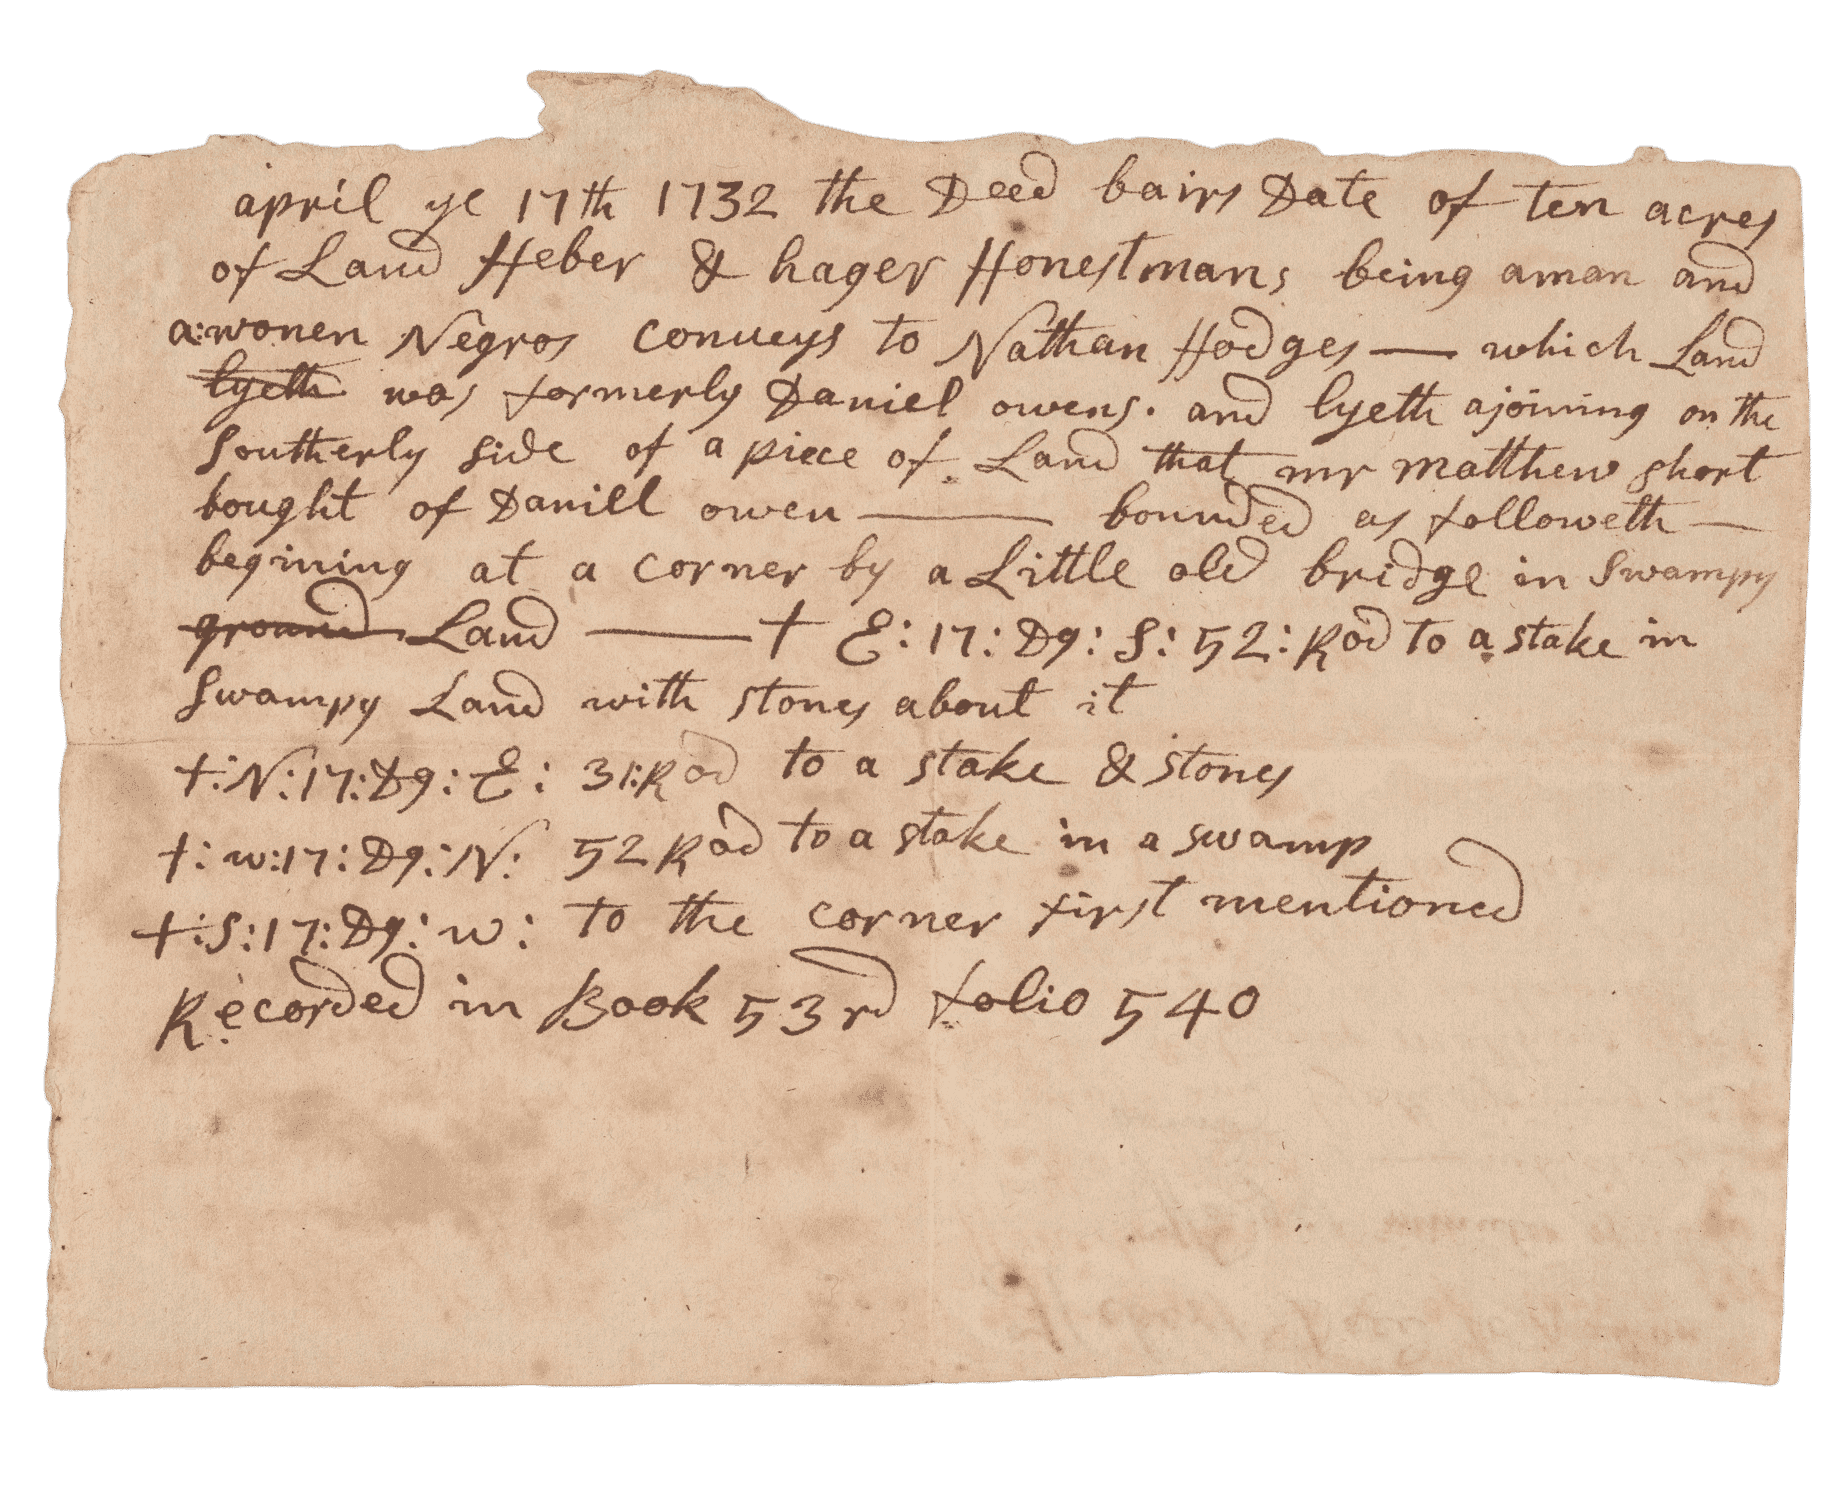 april ye 17th 1732 the Deed bairs Date of ten acres
of Land Heber & hager Honestmans being aman and
a:wonen Negros conveys to Nathan Hodges — which Land
lyeth was formerly Daniel owens. and lyeth ajoining on the
Southerly side of a piece of Land that mr matthew short
bought of Daniell owen — bounded as followeth —
begining at a corner by a Little old bridge in Swampy
ground Land — + E: 17: Dg: S: 52: Rod to a stake in
Swampy Land with stones about it
+: N: 17: Dg: E: 31: Rod to a stake & stones
+: w: 17: Dg: N: 52 Rod to a stake in a swamp
+: S: 17: Dg: w: to the corner first mentioned
Recorded in Book 53rd folio 540